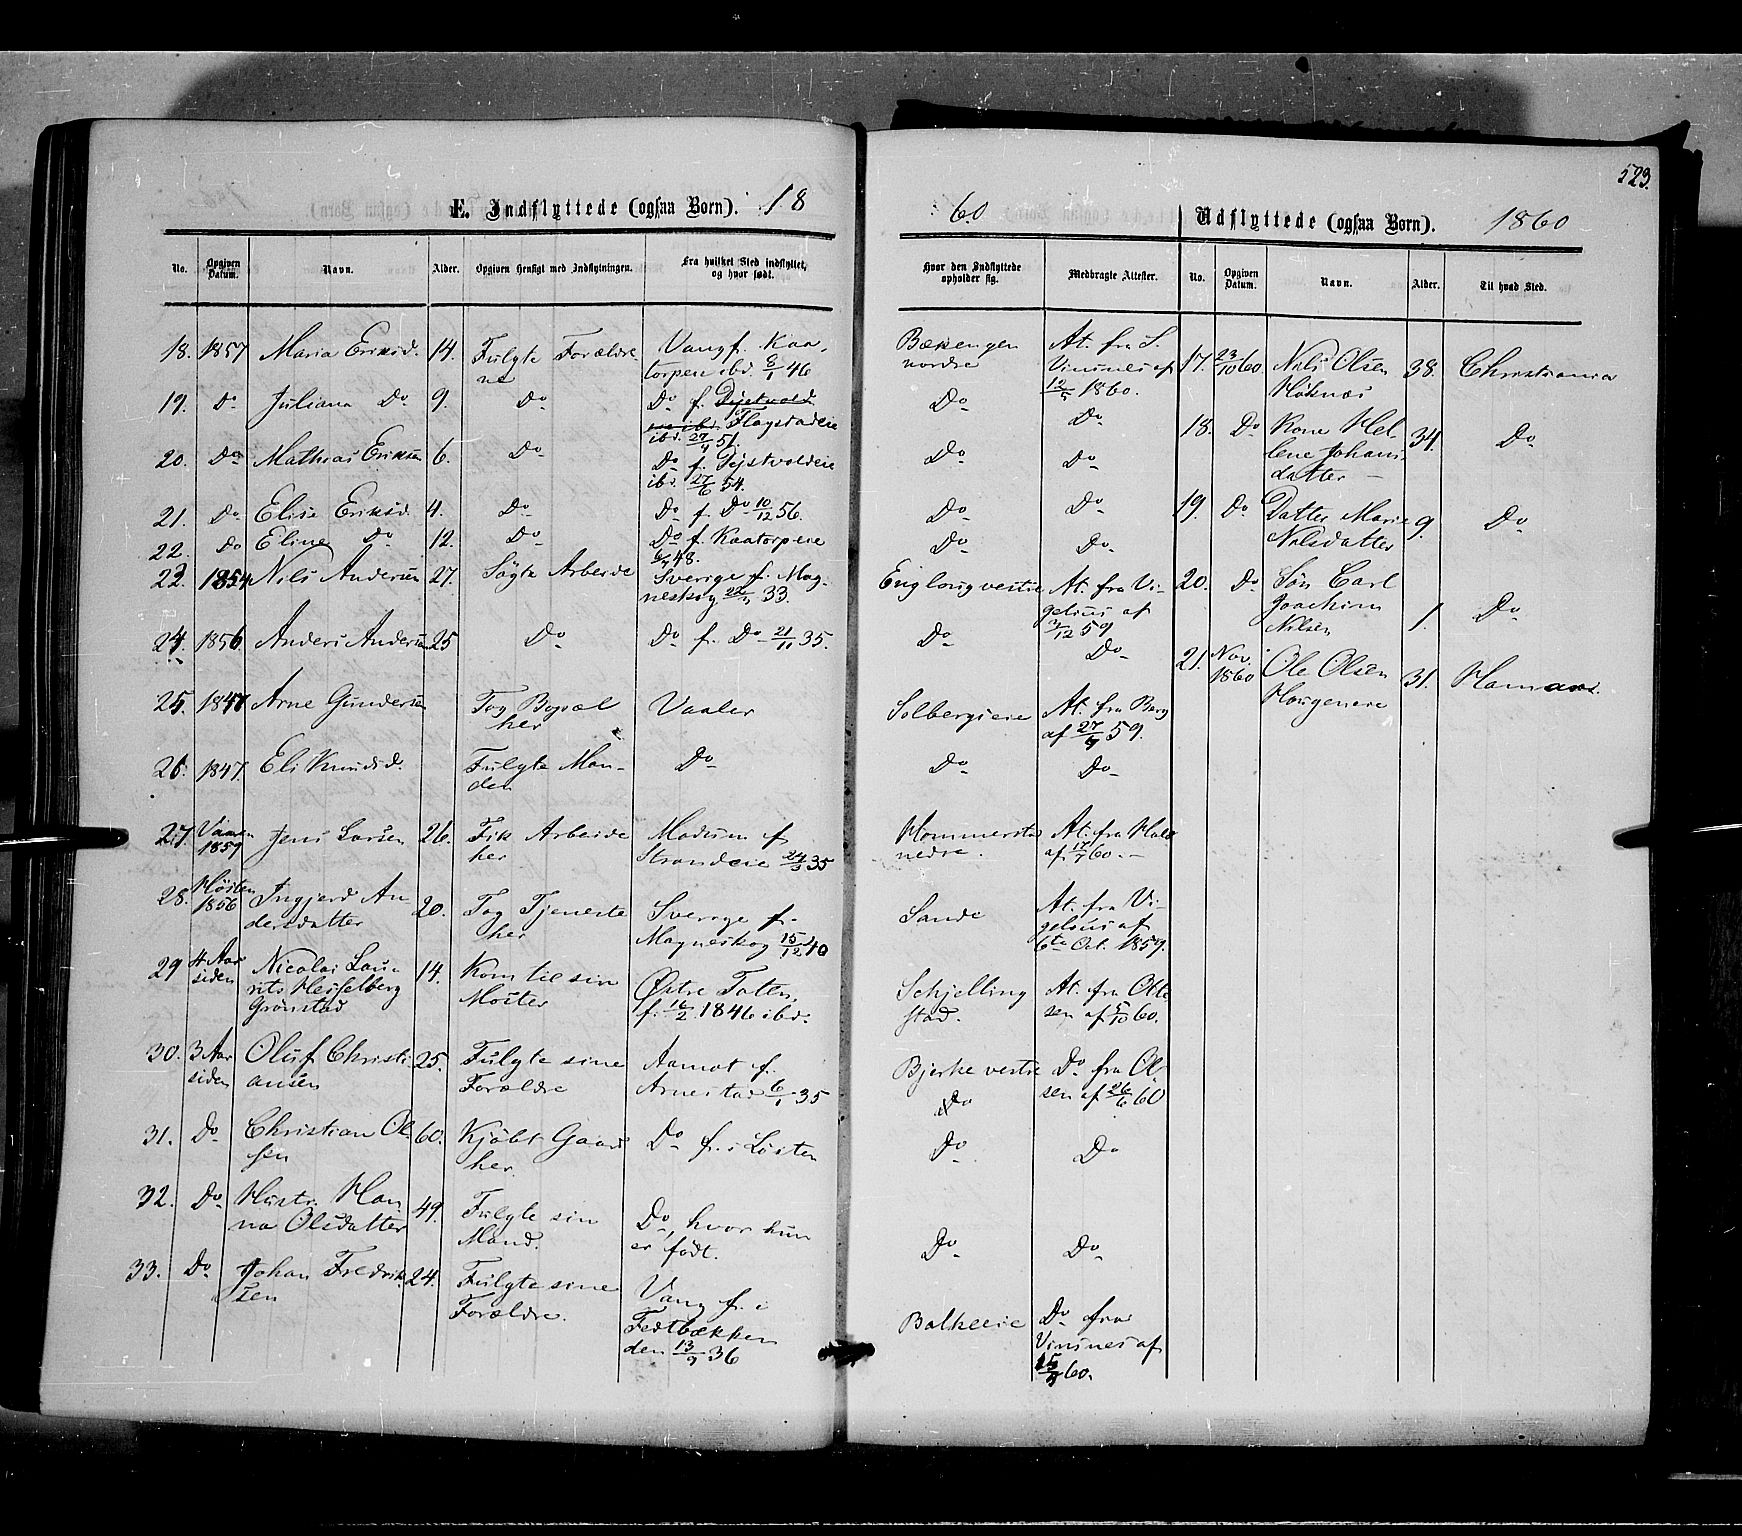 523.
E. Indflyttede (ogsaa Børn). 18
60
Udflyttede (ogsaa Børn). 1860
No. Opgiven Datum. Navn. Alder. Opgiven Hensigt med Indflytningen. Fra hvilket Sted indflyttet, og hvor født.
Hvor den Indflyttede opholder sig. Medbragte Attester.
No. Opgiven Datum. Navn. Alder. Til hvad Sted.
18. 1857 Maria Eriksd. 14. Fulgte Forældrene Vang f. Kaatorpeie ibd. 8/1 46 Bækengen nordre At. fra S. Vinsnes af 12/5 1860.
19. Do Juliana Do 9. Do Do f. Flagstadeie ibd. 27/4 51. Do Do
20. Do Mathias Eriksen 6. Do Do f. Tejstvoldeie ibd. 27/6 54. Do Do
21. Do Elise Eriksd. 4. Do Do f. Do 10/12 56. Do Do
22. Do Eline Do 12. Do Do f. Kaatorpeie 48. Do Do
1854 Nils Andersen 27. Søgte Arbeide Sverige f. Magneskog 33. Englaug vestre At. fra Vigelius af 3/12 59
24. 1856 Anders Andersen 25 Do Do f. Do 21/11 35. Do Do
25. 1847 Arne Gundersen Tog Bopæl her Vaaler Solbergseie At. fra Berg af 27/9 59.
26. 1847. Eli Knudsd. Fulgte Manden Do Do Do
27. Vaaren 1859 Jens Larsen 26. Fik Arbeide her Modum f. Strandeie 24/3 35 Hommerstad nedre. At. fra Hals af 17/7 60.
28. Høsten 1856 Ingjerd Andersdatter 20. Tog Tjeneste her Sverige f. Magneskog 15/12 40 Sande At. fra Vigelius af 6te Oct. 1859.
29 4 Aar siden Nicolai Laurits Hesselberg Grønstad 14. Kom til sin Moster Østre Toten, f. 16/2 1846 ibd. Schjellingstad. At. fra Ottesen af 5/10 60.
30. 3 Aar siden Oluf Christiansen 25. Fulgte sine Forældre Aamot f. Arnestad 6/1 35 Bjerke vestre Do fra Olsen af 26/6 60
Do
31. Do Christian Olsen 60. Kjøbt Gaard her Do f. i Løiten Do Do
32. Do Hustr. Hanna Olsdatter 49. Fulgte sin Mand. Do, hvor hun er født. Do Do
33. Do Johan Fredriksen 24. Fulgte sine Forældre. Vang f. i Fedtbækken den 13/9 36 Balkeeie Do fra Vinsnes af 60.
17. 23/10 60 Nils Olsen Høknæs 38 Christiania
18. Do Kone Helene Johansdatter 34. Do
19. Do Datter Marie Nilsdatter 9. Do
20. Do Søn Carl Joachim Nilsen 1. Do
21. Nov. 1860 Ole Olsen Haugeneie 31. Hamar.